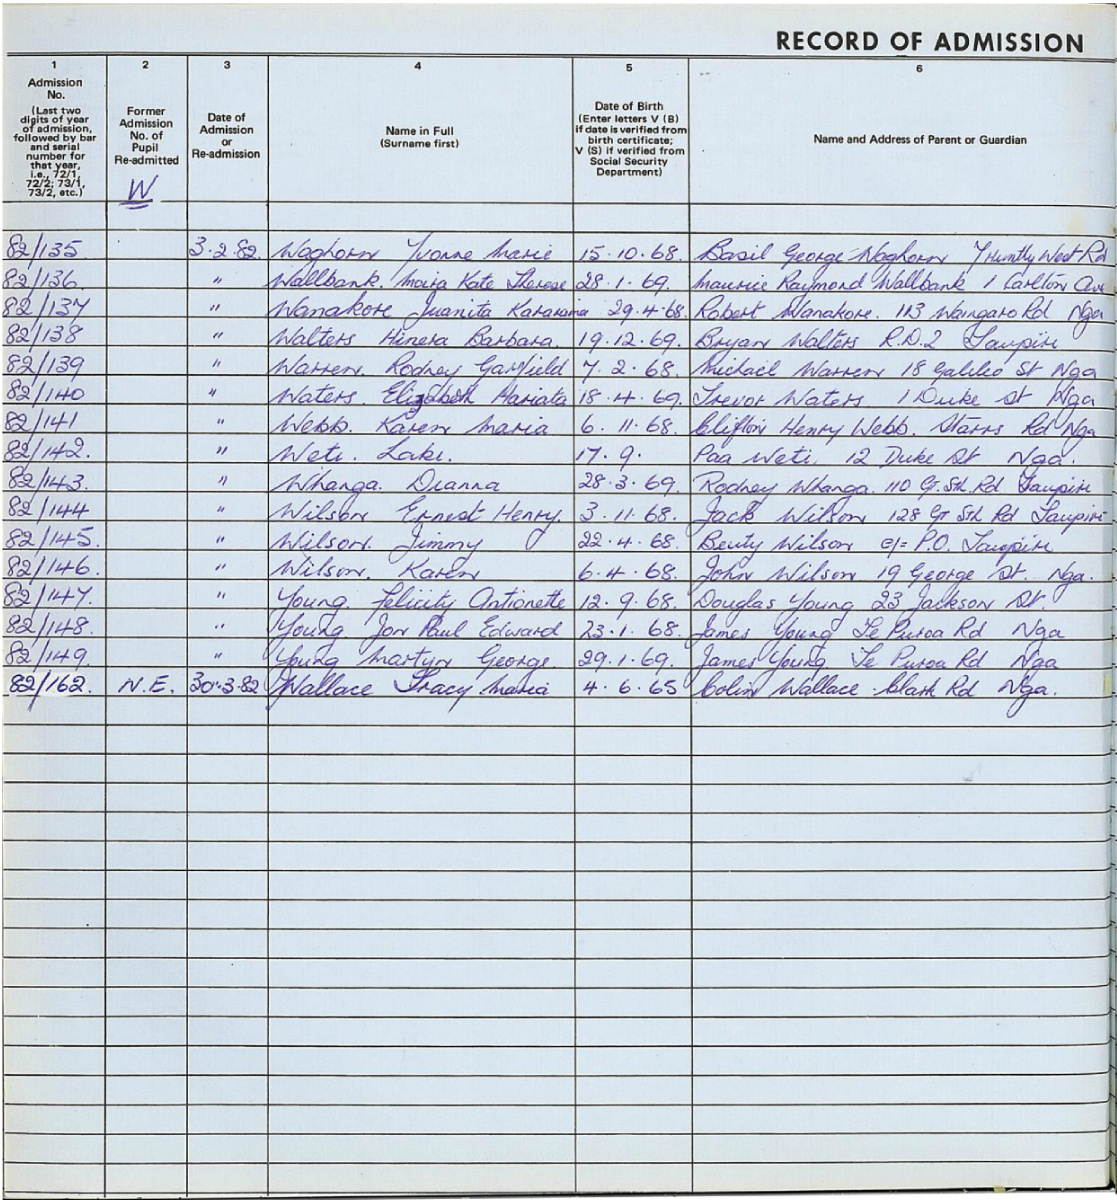 RECORD OF ADMISSION
1 2 3 4 5 6
Admission No. (Last two digits of year of admission, followed by bar and serial number for that year, i.e., 72/1, 72/2; 73/1, 73/2, etc.)
Former Admission No. of Pupil Re-admitted
W
Date of Admission or Re-admission
Name in Full (Surname first)
Date of Birth (Enter letters V (B) if date is verified from birth certificate; V (S) if verified from Social Security Department)
Name and Address of Parent or Guardian
82/135 3.2.82. Waghorn Yvonne Marie 15.10.68. Basil George Waghorn 7 Huntly West Rd
82/136. " Wallbank. Maira Kate Therese 28.1.69. Maurice Raymond Wallbank 1 Carlton Ave
82/137 " Wanakore Juanita Kararaina 29.4.68. Robert Wanakore. 113 Waingaro Rd Nga
82/138 " Walters Hinera Barbara. 19.12.69. Bryan Walters R.D.2 Taupiri
82/139 " Warren. Rodney Garfield 7.2.68. Michael Warren 18 Galileo St Nga
82/140 " Waters. Elizabeth Hariata 18.4.69. Trevor Waters 1 Duke St Nga
82/141 " Webb. Karen Maria 6.11.68. Clifton Henry Webb. Starrs Rd Nga
82/142. " Weti. Lake. 17.9. Paa Weti. 12 Duke St Nga.
82/143. " Whanga. Dianna 28.3.69. Rodney Whanga. 110 Gt. Sth Rd Taupiri
82/144 " Wilson Ernest Henry. 3.11.68. Jack Wilson 128 Gt Sth Rd Taupiri
82/145. " Wilson. Jimmy 22.4.68. Beuty Wilson c/= P.O. Taupiri
82/146. " Wilson. Karen 6.4.68. John Wilson 19 George St. Nga.
82/147. " Young. Felicity Antionette 12.9.68. Douglas Young 23 Jackson St.
82/148. " Young Jon Paul Edward 23.1.68. James Young Te Puroa Rd Nga
82/149. " Young Martyn George. 29.1.69. James Young. Te Puroa Rd Nga
82/162. N.E. 30.3.82 Wallace Tracy Maria 4.6.65 Colin Wallace Clark Rd Nga.